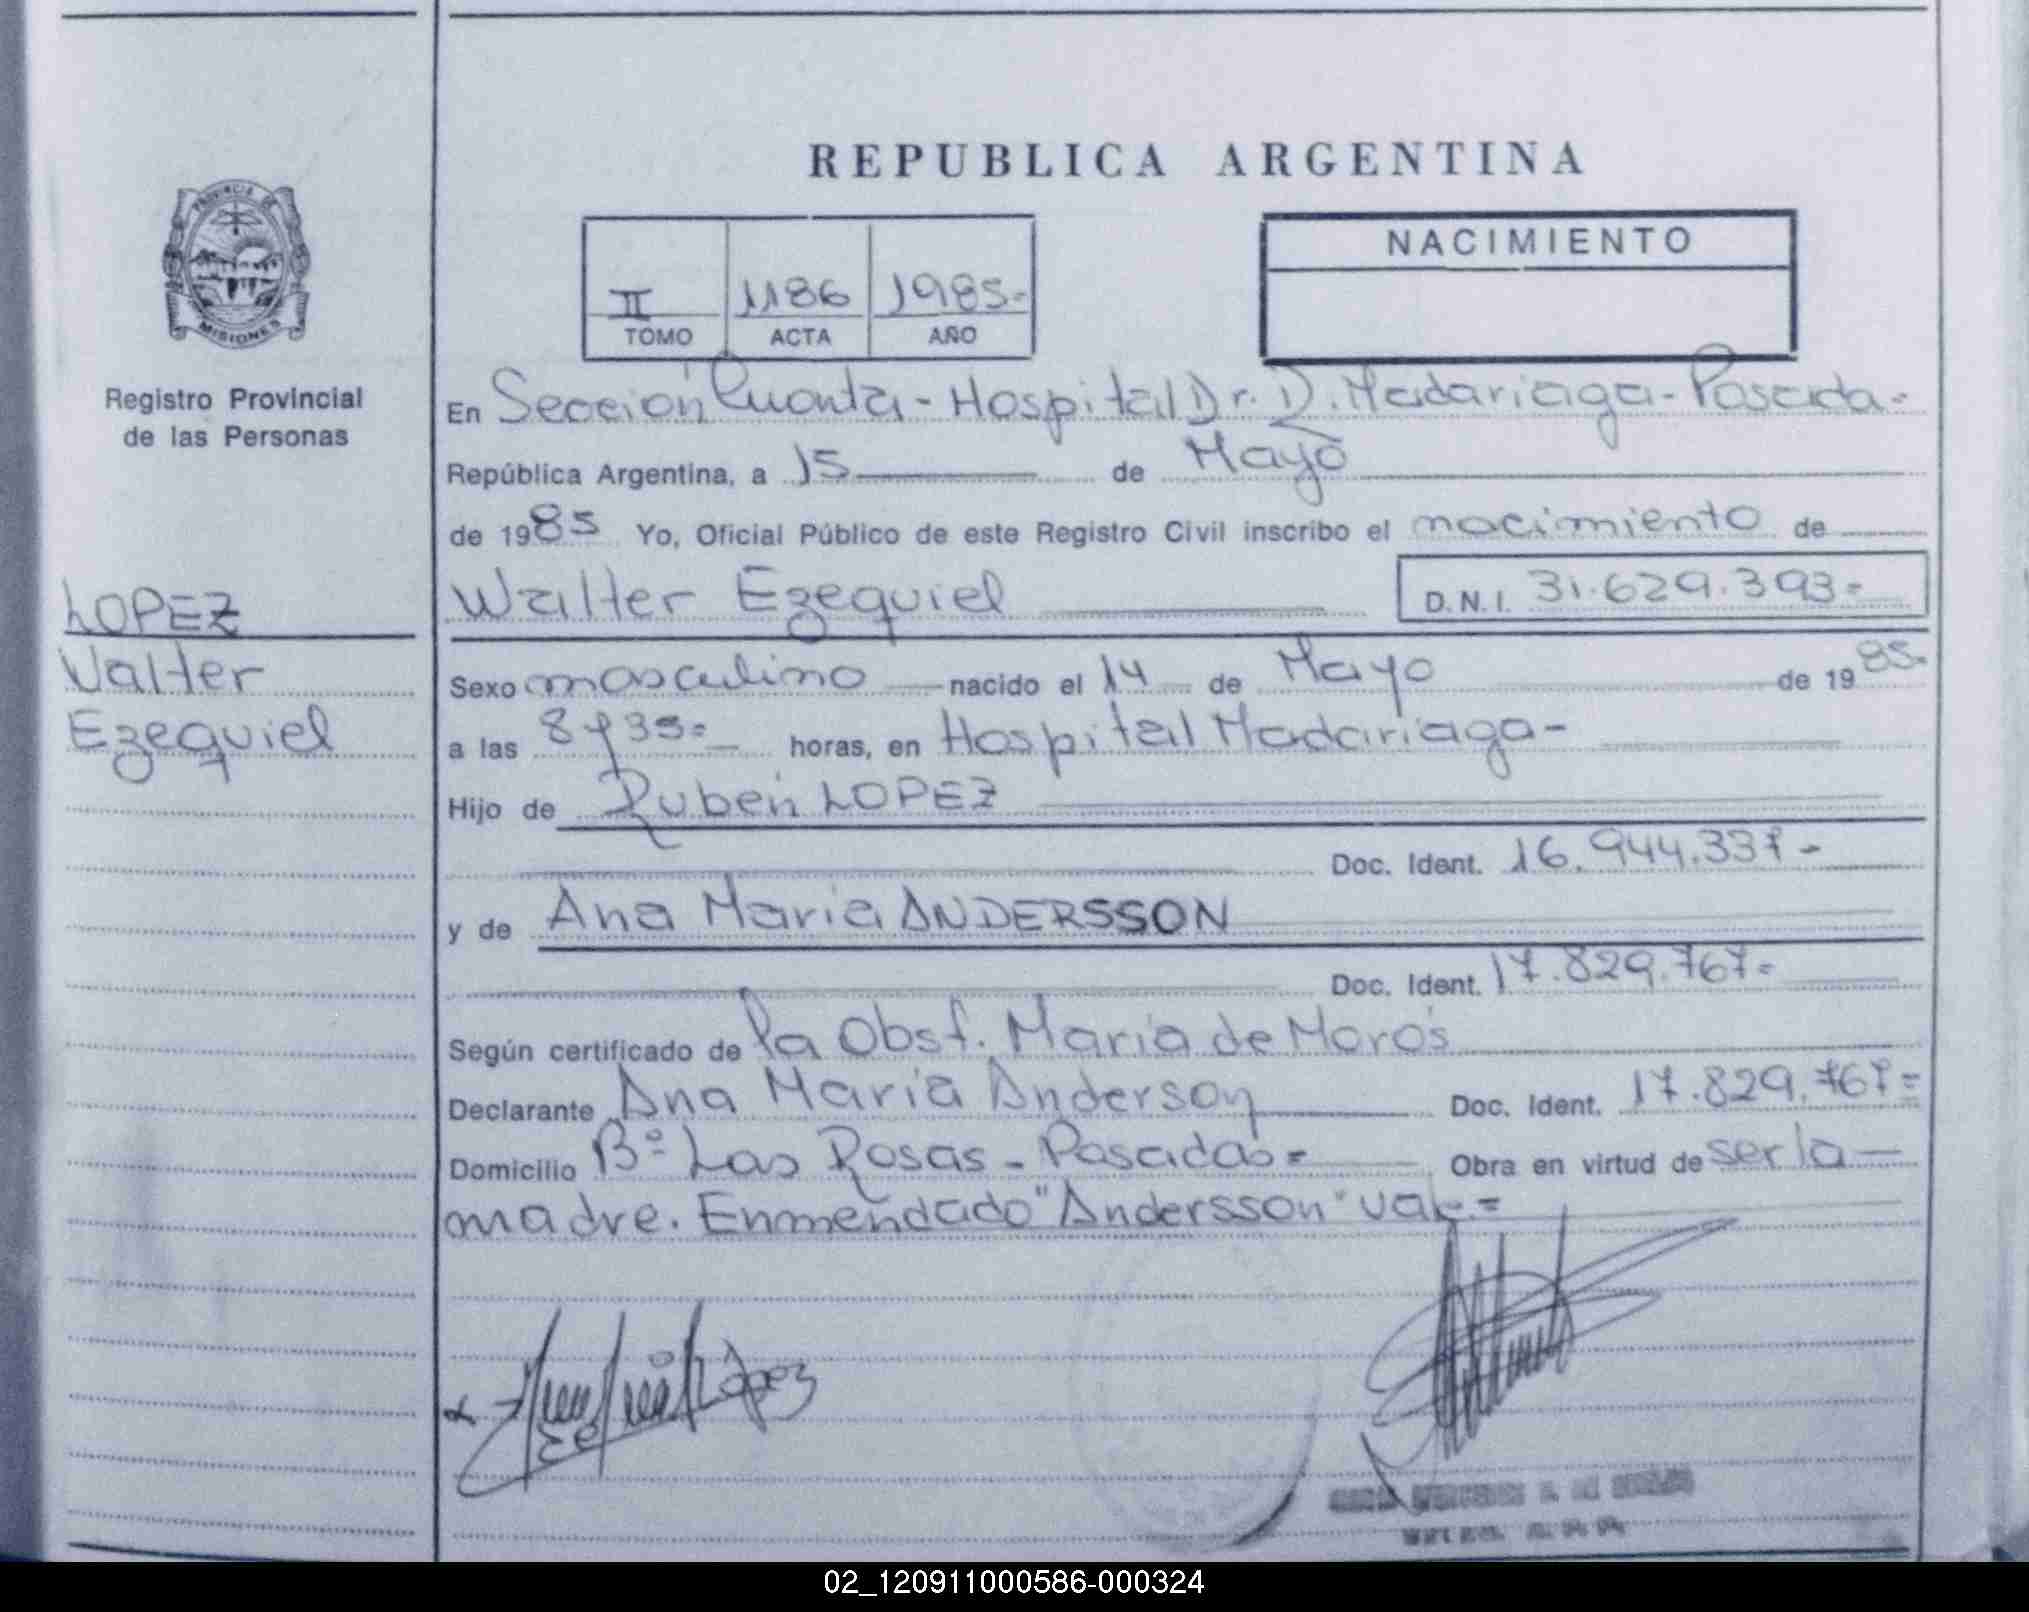 REPUBLICA ARGENTINA
PROVINCIA DE
MISIONES
Registro Provincial
de las Personas
II 1186 1985-
TOMO ACTA AÑO
NACIMIENTO
En Sección Cuarta - Hospital Dr. R. Madariaga - Posada-
República Argentina, a 15 de Mayo
de 1985 Yo, Oficial Público de este Registro Civil inscribo el nacimiento de
Walter Ezequiel D.N.I. 31.629.393=
LOPEZ
Walter
Ezequiel
Sexo masculino nacido el 14 de Mayo de 1985-
a las 8 y 35= horas, en Hospital Madariaga-
Hijo de Rubén LOPEZ
Doc. Ident. 16.944.337-
y de Ana Maria ANDERSSON
Doc. Ident. 17.829.767=
Según certificado de la Obst. María de Moros
Declarante Ana María Anderson Doc. Ident. 17.829.767=
Domicilio Bº Las Rosas - Posadas= Obra en virtud de ser la
madre. Enmendado "Andersson" vale=
López
02_120911000586-000324